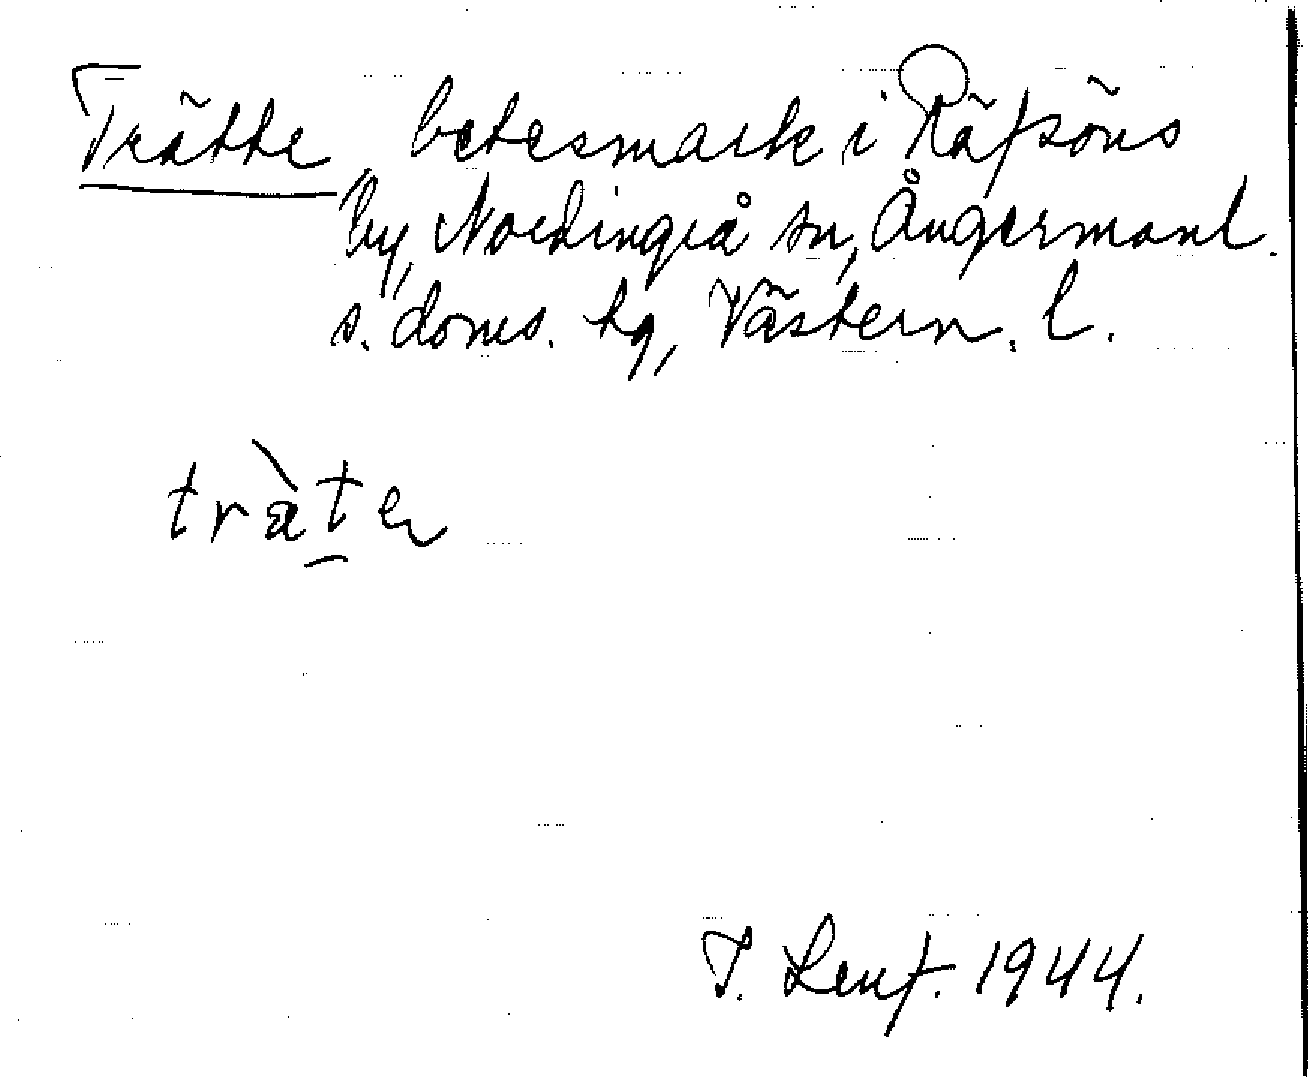 Trätte, betesmark i Räfsöns
by, Nordingrå sn, Ångermanl.
s. doms. tg, Västern. l.
tràte
T. Lenf. 1944.